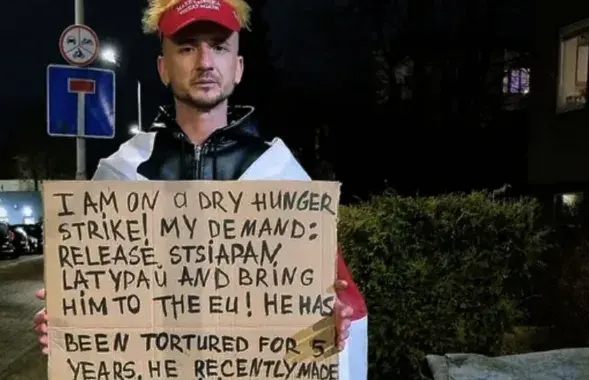 I AM ON a DRY HUNGER
STRIKE! MY DEMAND:
RELEASE STSIAPAN
LATYPAŬ AND BRING
HIM TO THE EU! HE HAS
BEEN TORTURED FOR 5
YEARS. HE RECENTLY MADE